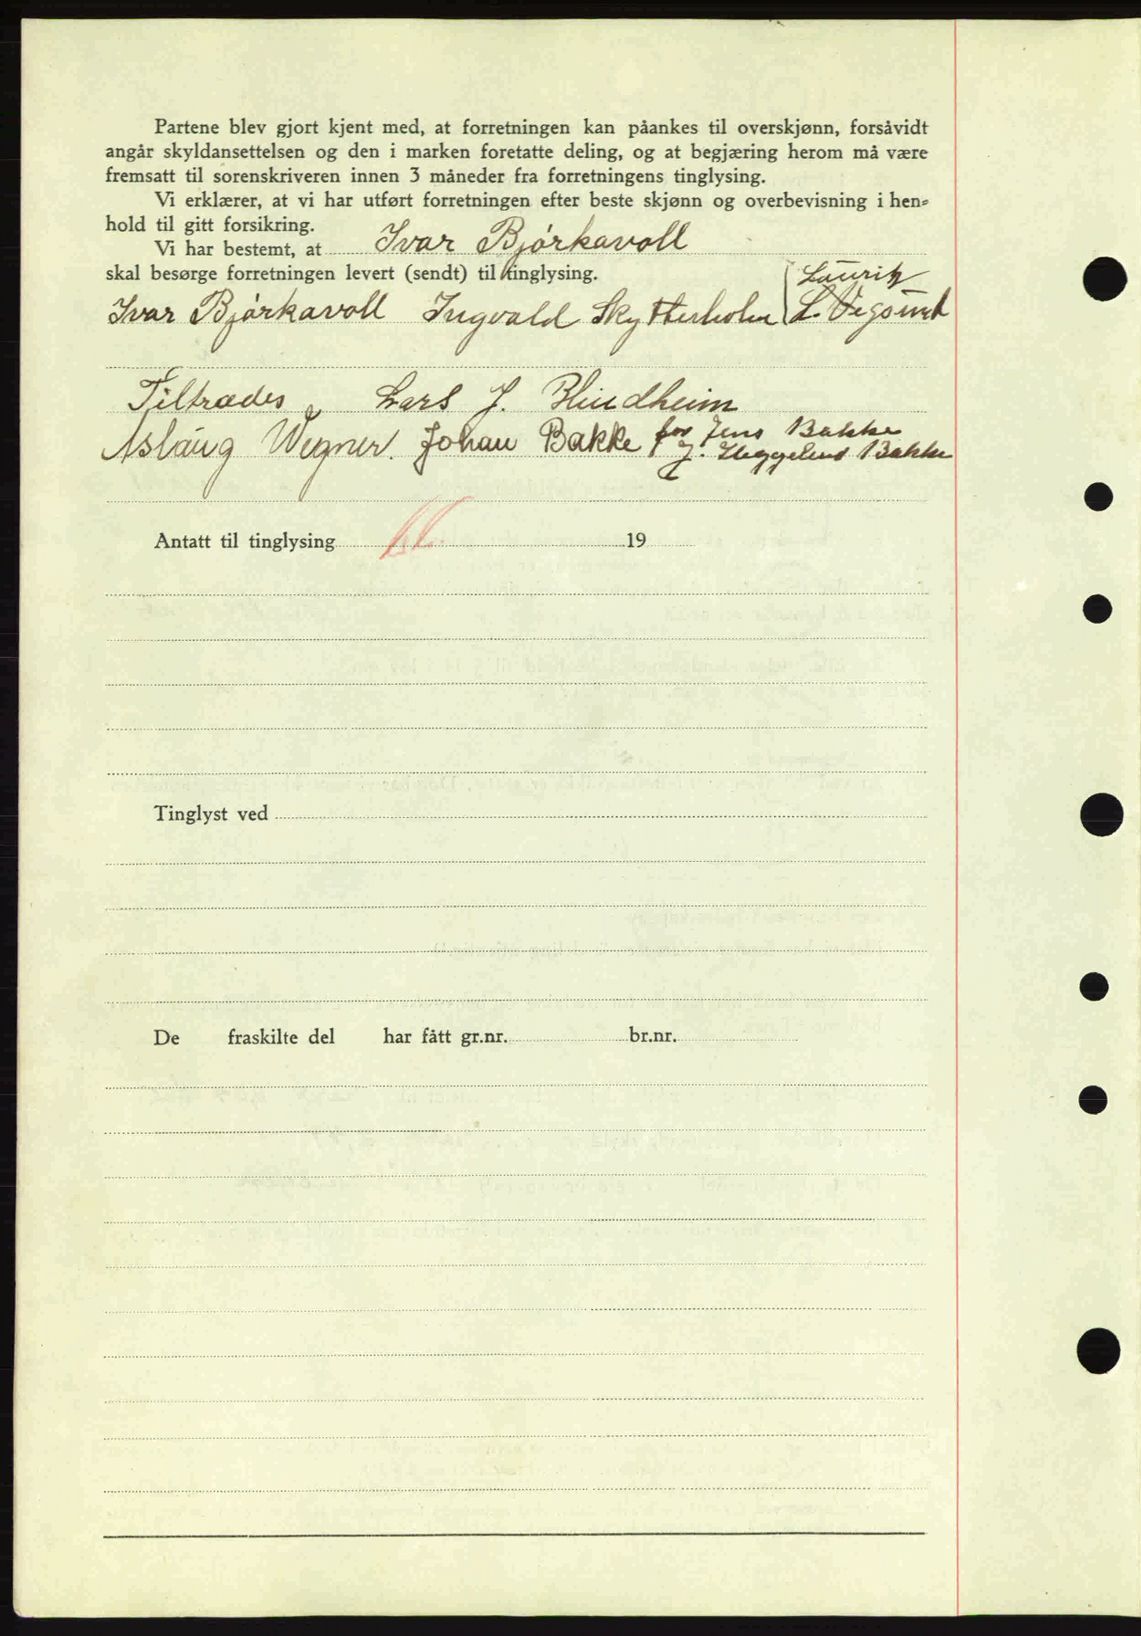 Partene blev gjort kjent med, at forretningen kan påankes til overskjønn, forsåvidt
angår skyldansettelsen og den i marken foretatte deling, og at begjæring herom må være
fremsatt til sorenskriveren innen 3 måneder fra forretningens tinglysing.
Vi erklærer, at vi har utført forretningen efter beste skjønn og overbevisning i hen-
hold til gitt forsikring.
Vi har bestemt, at Ivar Bjørkavoll
skal besørge forretningen levert (sendt) til tinglysing.
Lauritz
Ivar Bjørkavoll Ingvald Skytterholm L. Vegsund
Tiltrædes Lars J. Blindheim
Aslaug Wegner. Johan Bakke for Jens Bakke
J. Heggelund Bakke
Antatt til tinglysing 19
Tinglyst ved
De fraskilte del har fått gr.nr. br.nr.